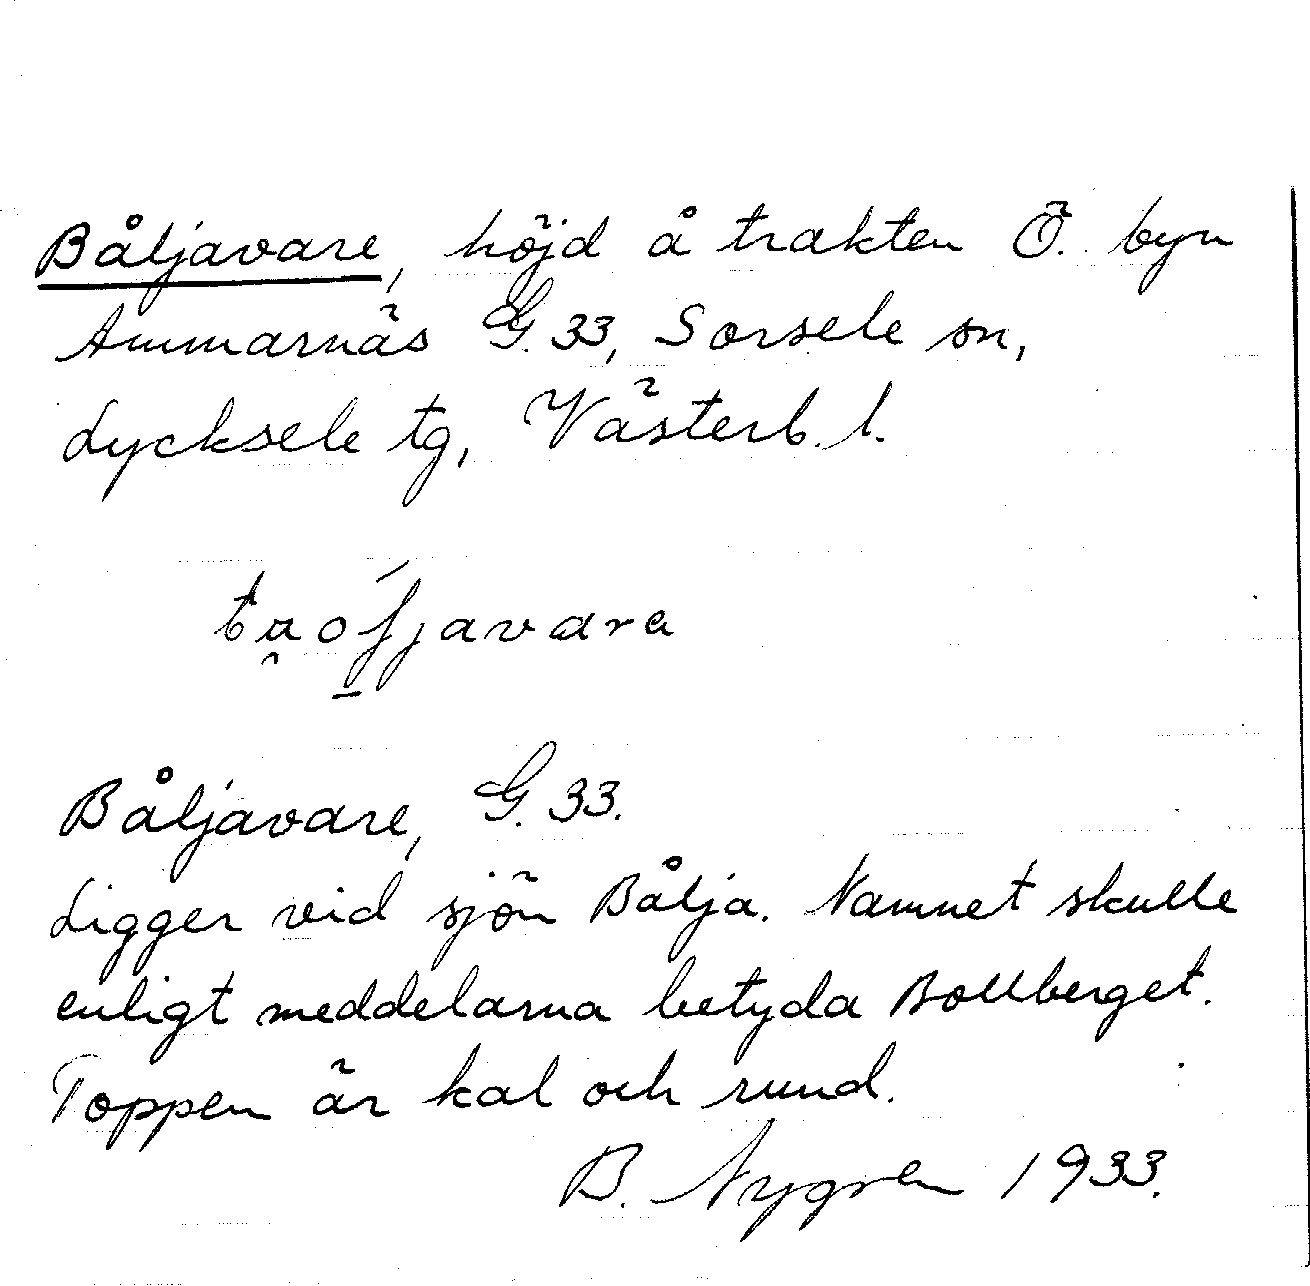 Båljavare, höjd å trakten Ö. byn
Ammarnäs G. 33, Sorsele sn,
Lycksele tg, Västerb. l.
Båljavare, G. 33.
Ligger vid sjön Bålja. Namnet skulle
enligt meddelarna betyda Bollberget.
Toppen är kal och rund.
B. Nygren 1933.